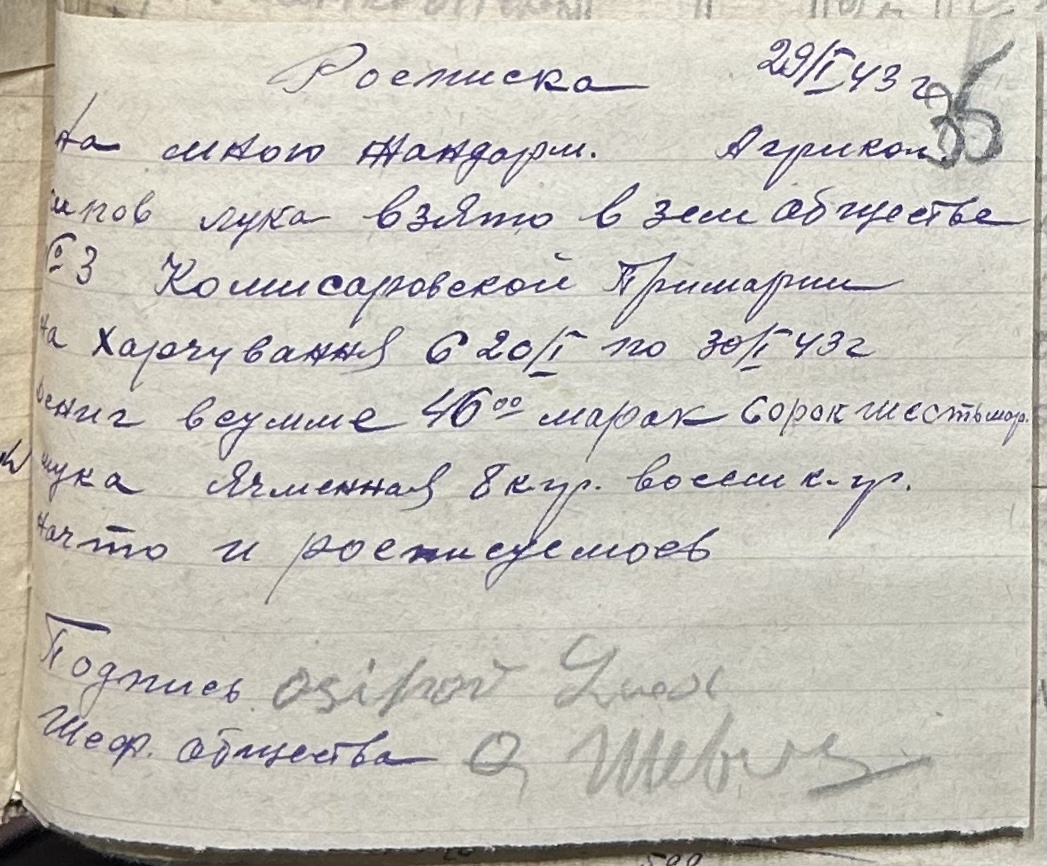 Росписка 29/I 43 г
35
на мною жандарм. Агрикол
ипов лука взято в земобществе
№ 3 Комисаровской Примарии
на харчування с 20/I по 30/I 43 г
дениг всумме 46⁰⁰ марак сорок шесть мар.
мука ячменная 8 к-гр. восем к-гр.
начто и росписуемось
Подпись osipov Luca
Шеф. общества